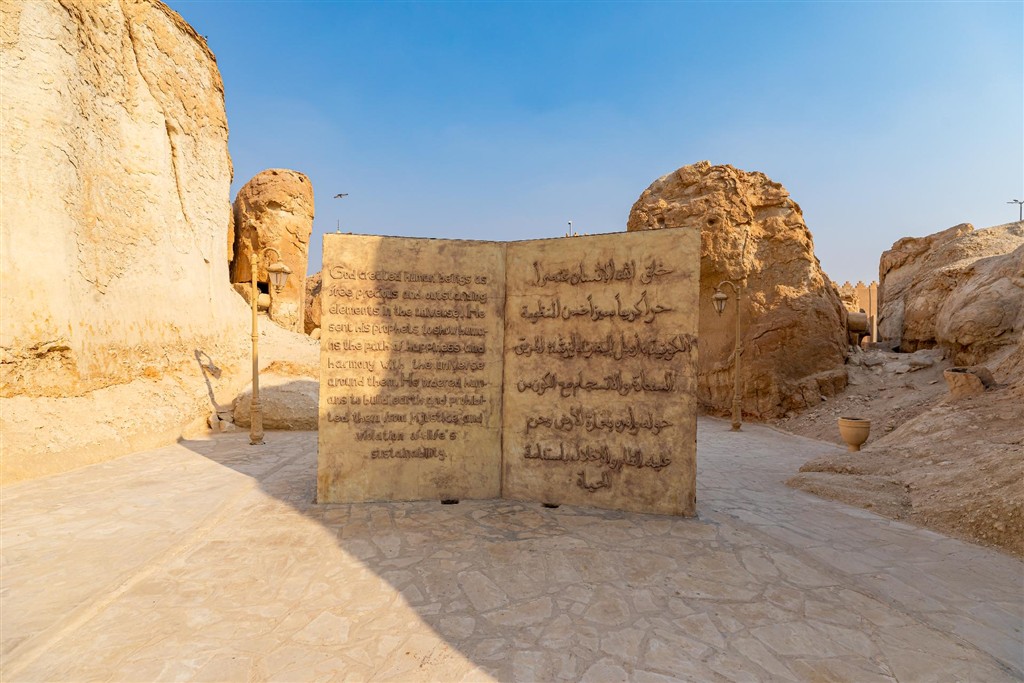 God created human beings as
free precious and outstanding
elements in the universe. He
sent his prophets to show huma-
ns the path of happiness and
harmony with the universe
around them. He ordered hum-
ans to build earth and prohibi-
ted them from injustice and
violation of life's
sustainability.
خلق الله الإنسان عنصراً
حراً كريماً مميزاً ضمن المنظومة
الكونية، أرسل إليه الرسل
السعادة والانسجام مع الكون من
حوله وأمره بعمارة الأرض وحرم
عليه الظلم والإخلال باستدامة
الحياة